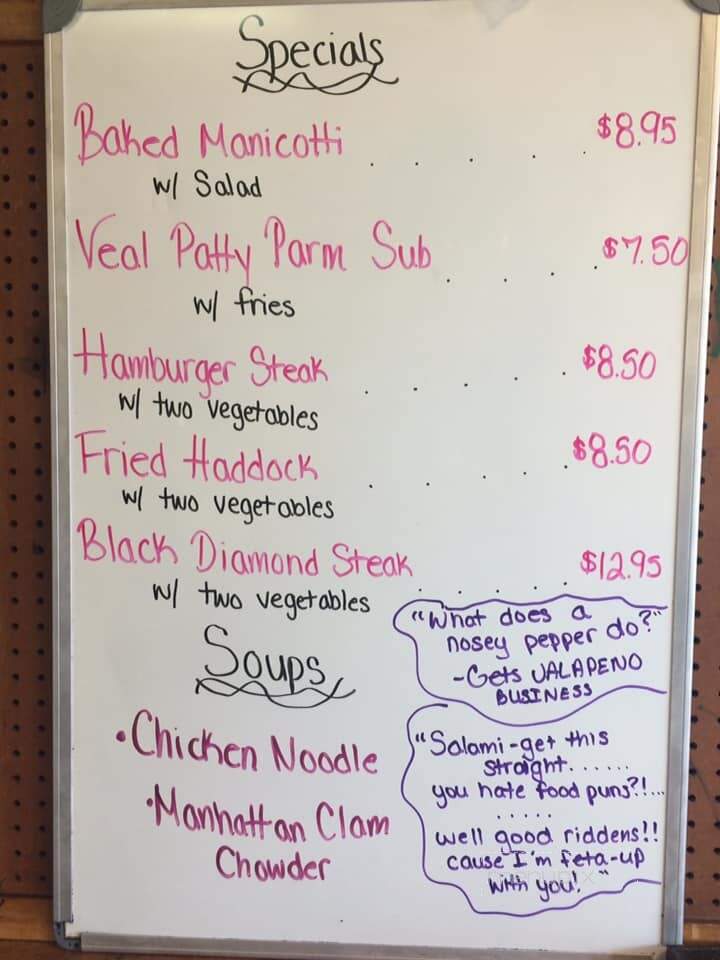 Specials
Baked Manicotti . . . . . $8.95
w/ Salad
Veal Patty Parm Sub . . . . $7.50
w/ fries
Hamburger Steak . . . . . $8.50
w/ two vegetables
Fried Haddock . . . . . $8.50
w/ two vegetables
Black Diamond Steak . . . . . $12.95
w/ two vegetables
"What does a
nosey pepper do?"
-Gets JALAPENO
BUSINESS
Soups
•Chicken Noodle
•Manhattan Clam
Chowder
"Salami-get this
straight......
you hate food puns?!...
.....
well good riddens!!
cause I'm feta-up
with you!"